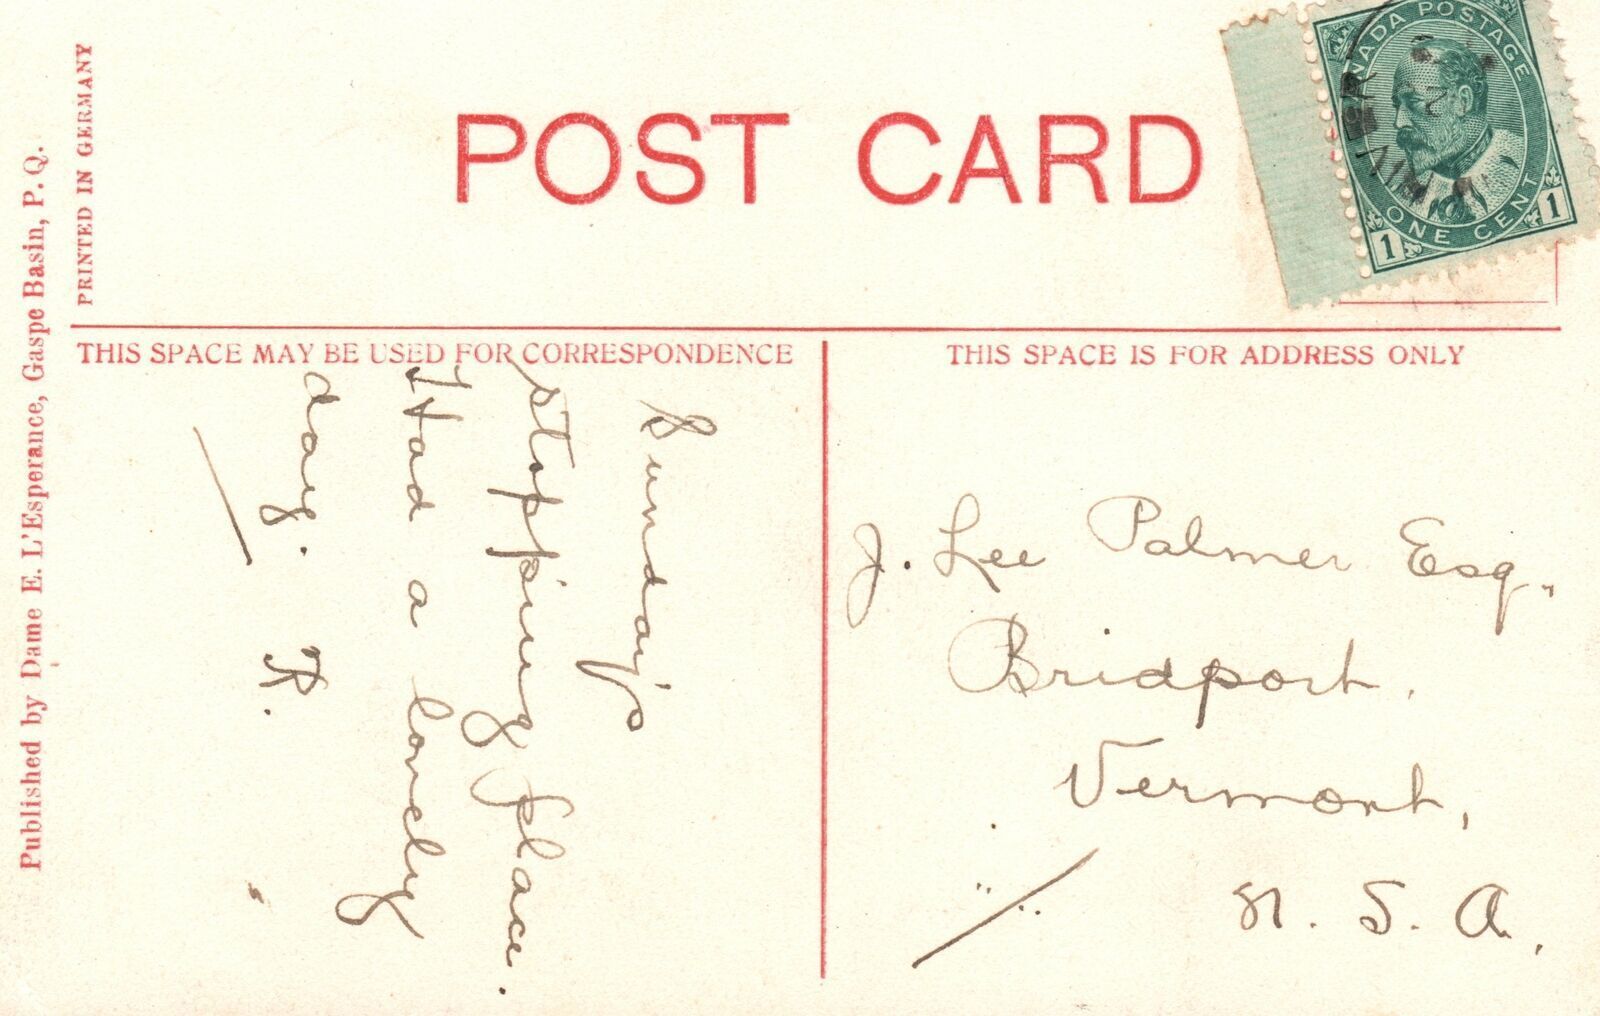 POST CARD
CANADA POSTAGE
ONE CENT
1 1
PRINTED IN GERMANY
Published by Dame E. L'Esperance, Gaspe Basin, P. Q.
THIS SPACE MAY BE USED FOR CORRESPONDENCE
Sunday's
stopping place.
Had a lonely
day. R.
THIS SPACE IS FOR ADDRESS ONLY
J. Lee Palmer Esq.
Bridport,
Vermont,
U. S. A.